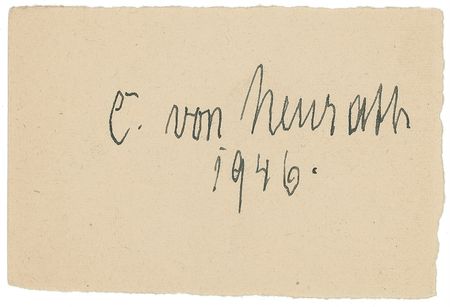 C. von Neurath
1946.